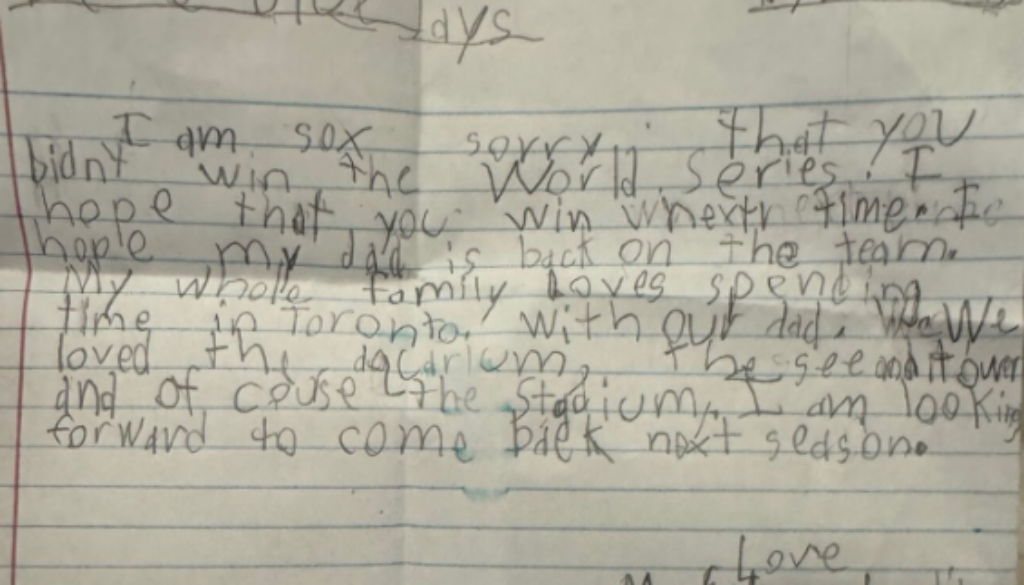 days
I am sox sorry that you
bidnt win the World series. I
hope that you win time.
hope my dad is back on the team.
My whole family Loves spending
time in Toronto. with our dad. We
loved the aqcarium, the see and it ower
and of couse the Stadium, I am looking
forward to come back next season.
Love